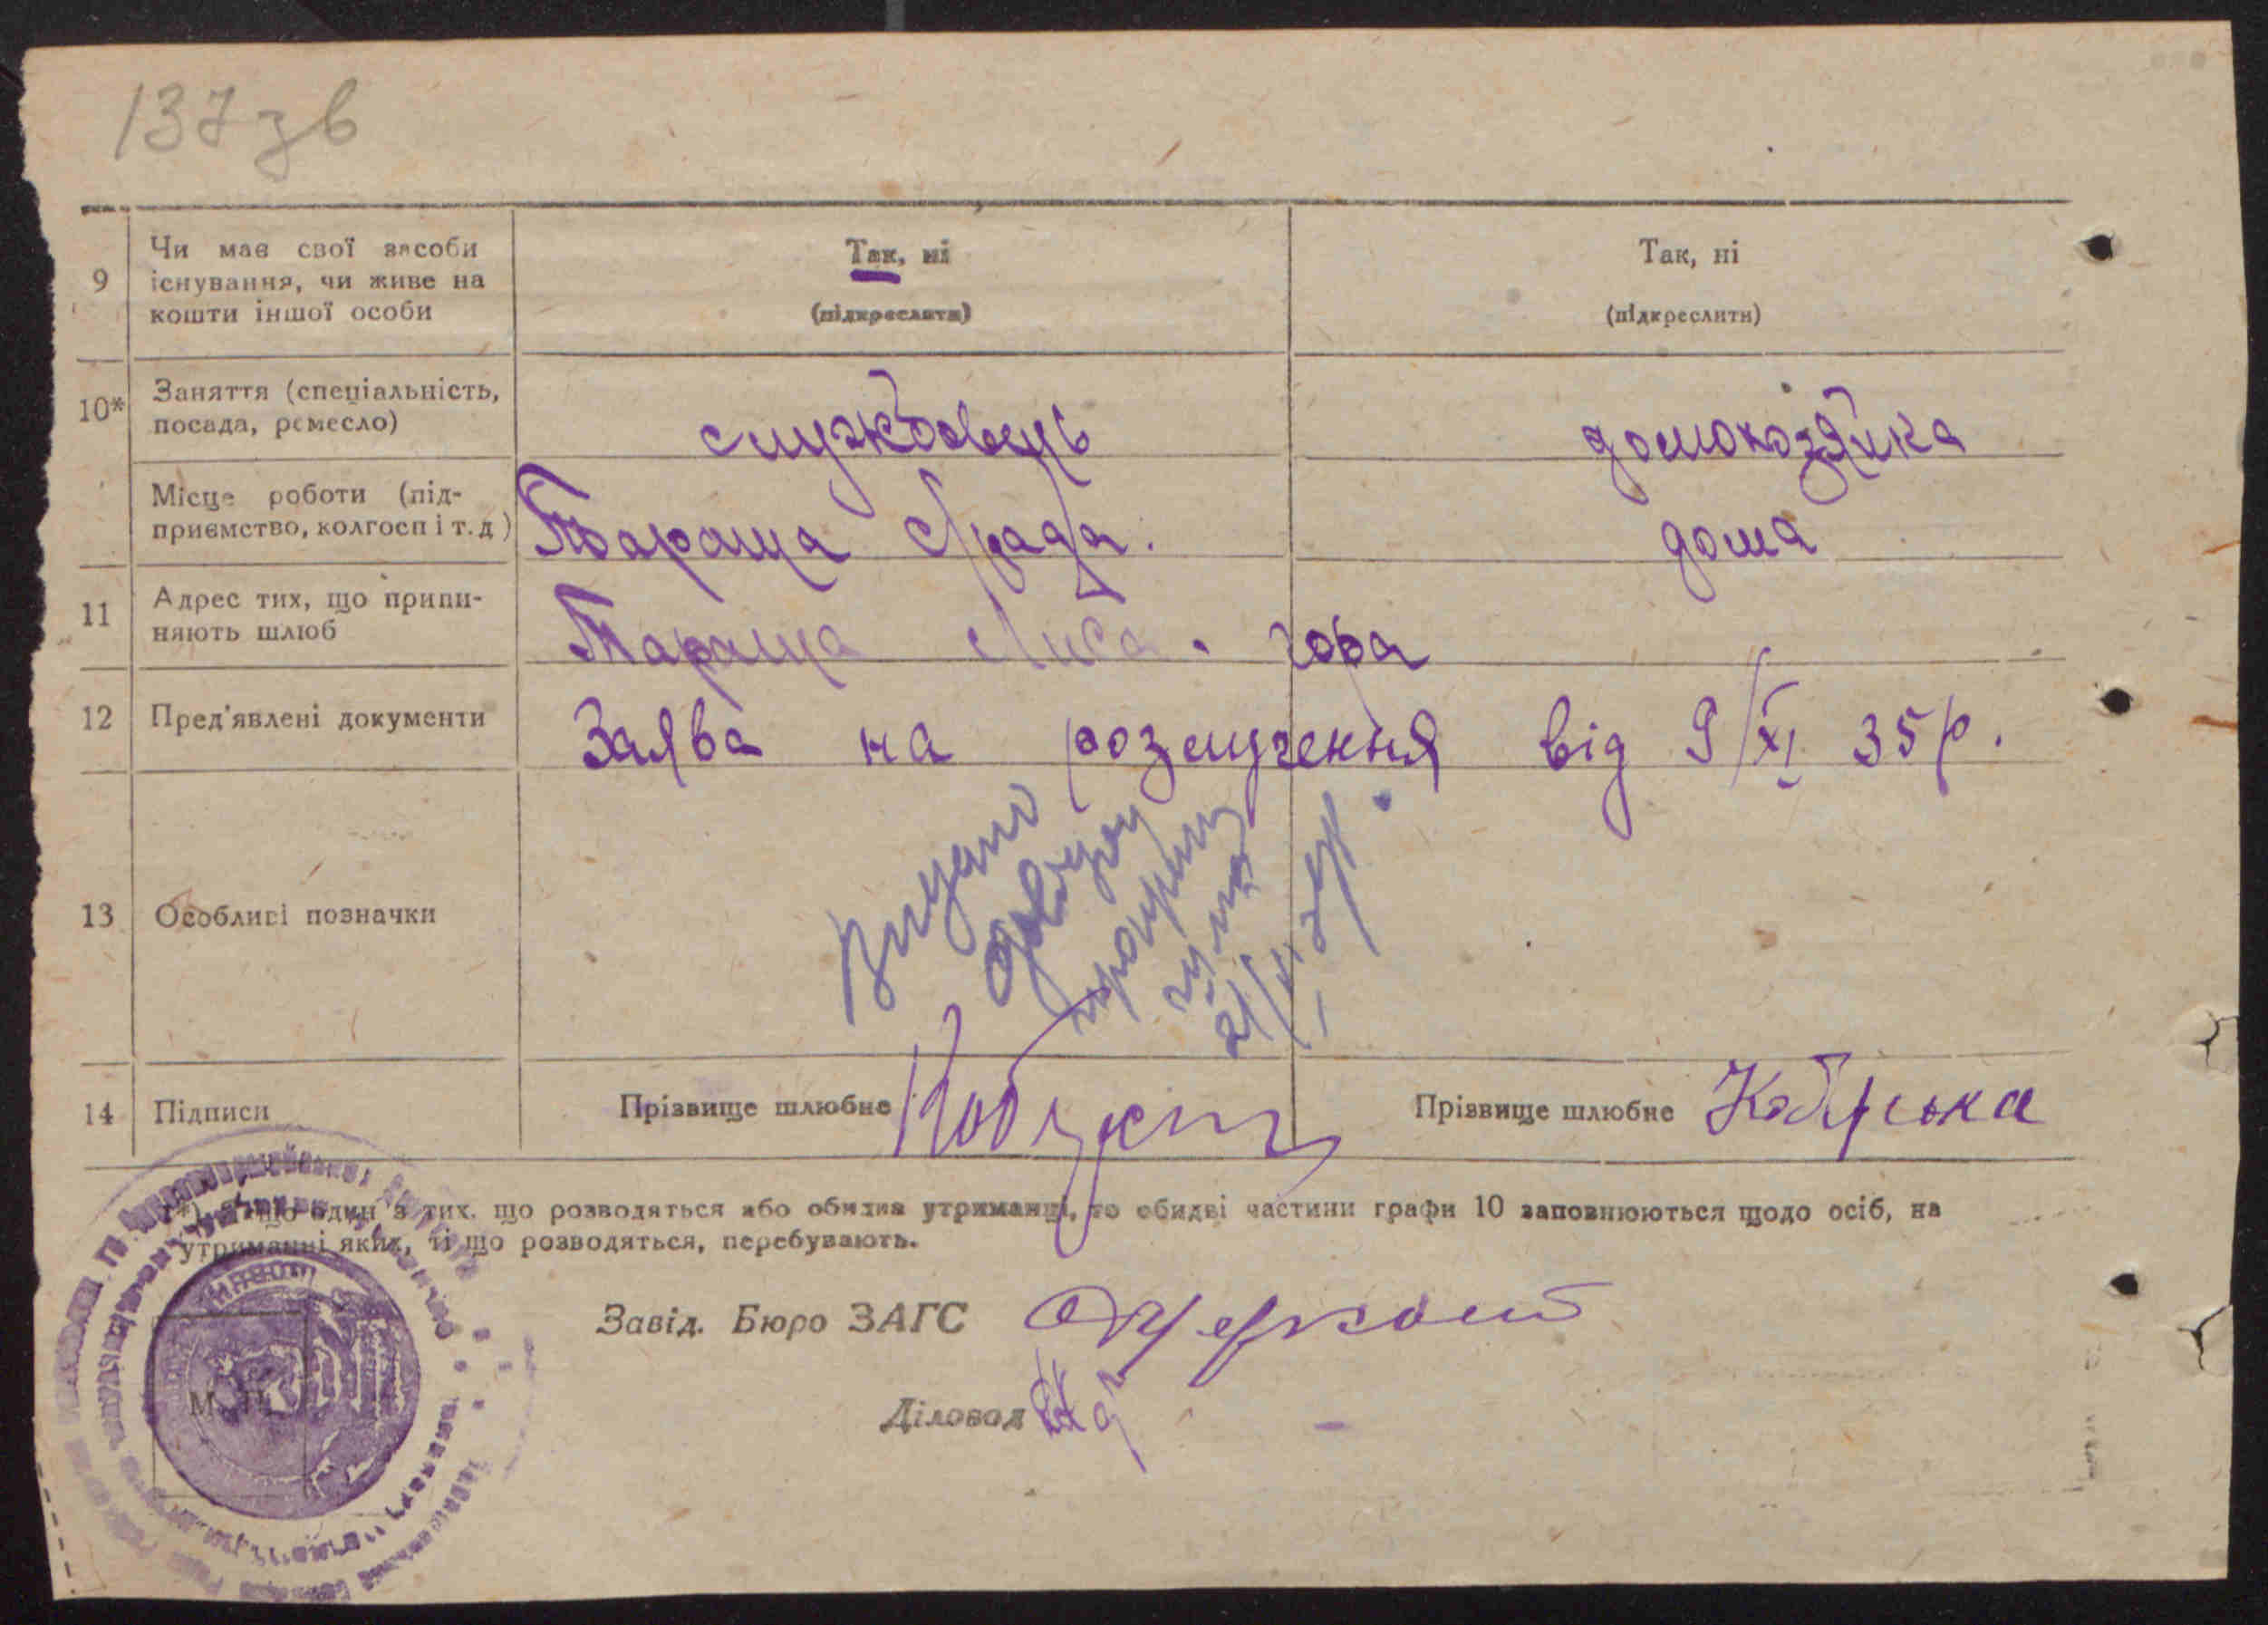 137 зв
9 Чи має свої засоби існування, чи живе на кошти іншої особи
Так, ні
(підкреслити)
Так, ні
(підкреслити)
10* Заняття (спеціальність, посада, ремесло)
службовець
домохозяйка
Місце роботи (підприємство, колгосп і т. д)
Тараща
дома
11 Адрес тих, що припиняють шлюб
Тараща Лиса гора
12 Пред'явлені документи
Заява на розлучення від 9/XI 35 р.
13 Особливі позначки
Видано
14 Підписи
Прізвище шлюбне
Прізвище шлюбне
*) Якщо один з тих, що розводяться або обидва утриманці, то обидві частини графи 10 заповнюються щодо осіб, на
утриманні яких, ті що розводяться, перебувають.
Завід. Бюро ЗАГС
Діловод
М. П.